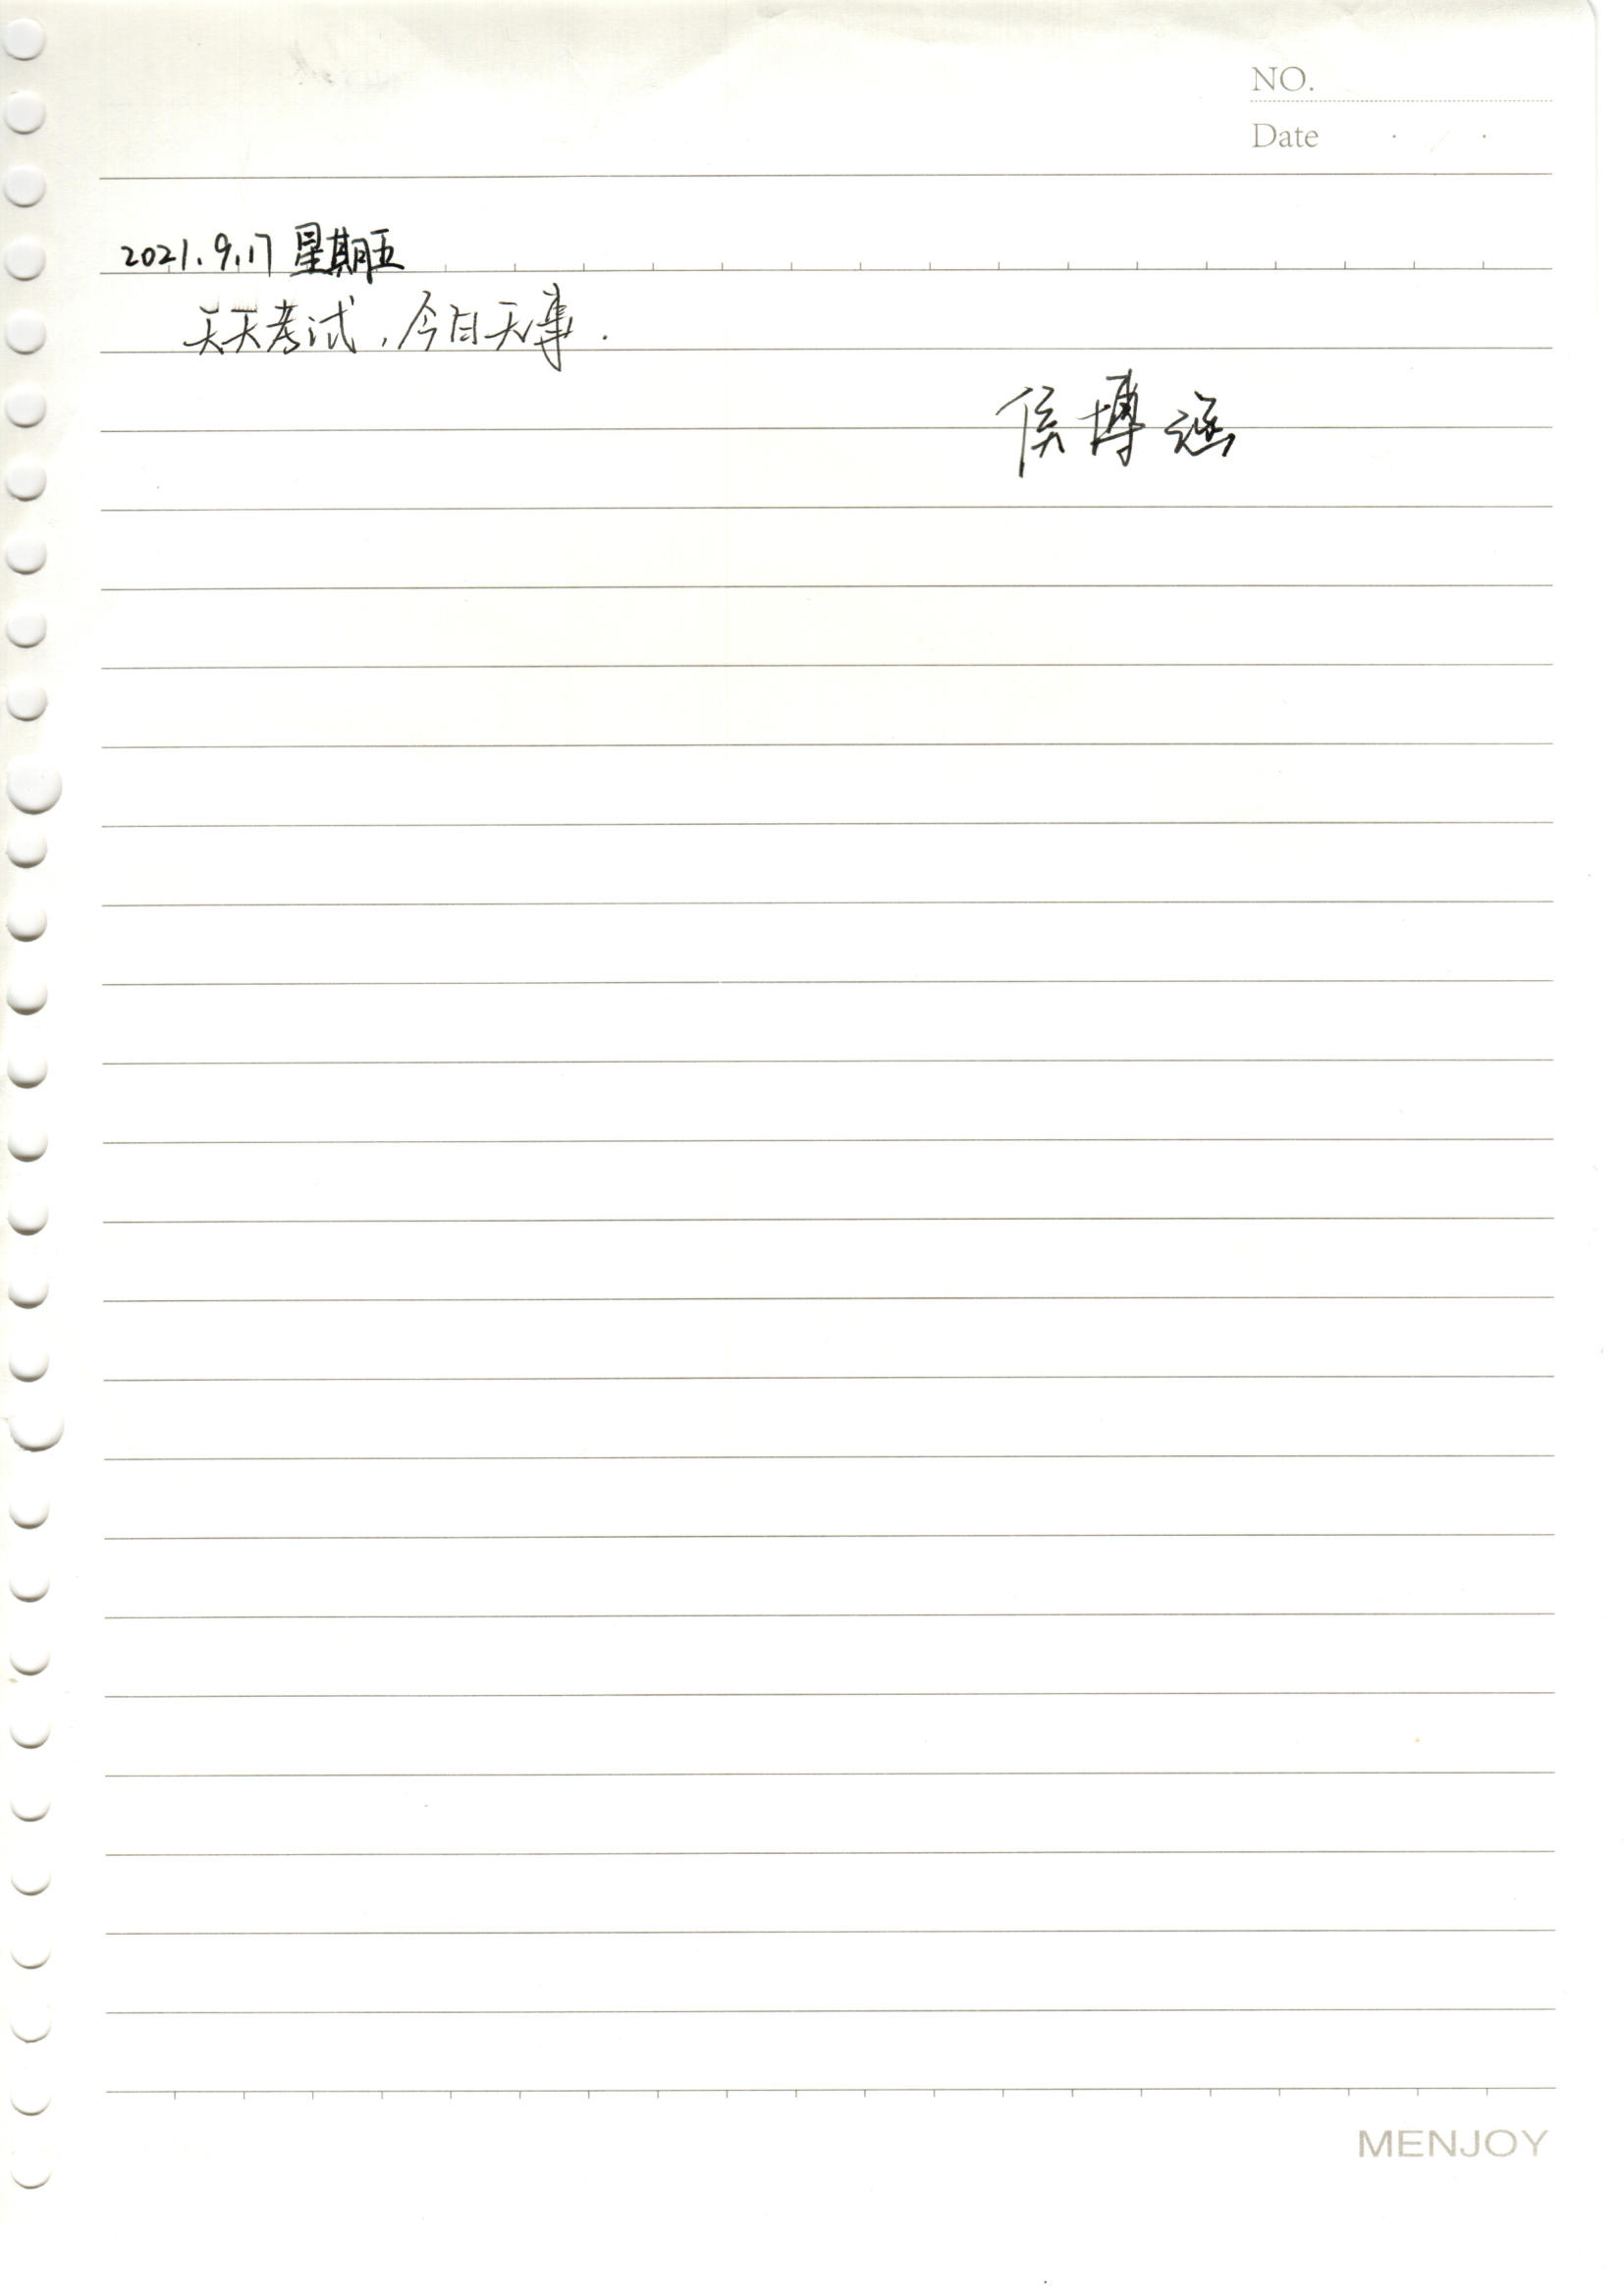 NO.
Date
2021.9.17 星期五
天天考试,今日无事.
侯博涵
MENJOY